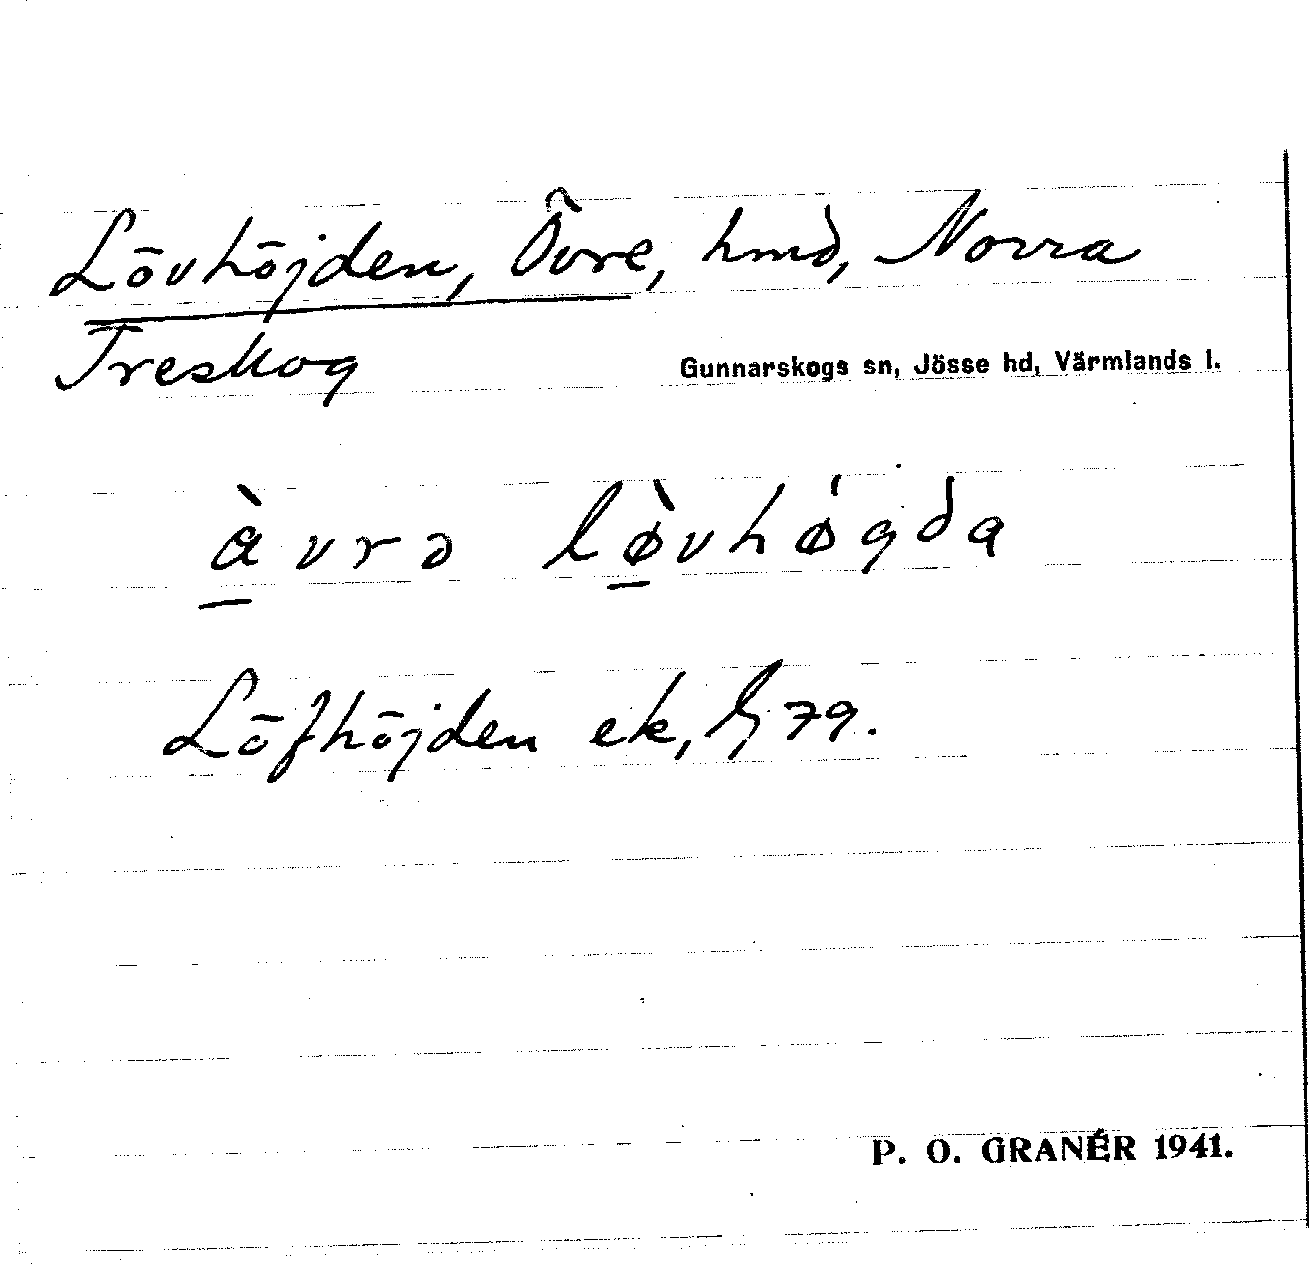 Lövhöjden, Övre, hmd, Norra
Treskog
Gunnarskogs sn, Jösse hd, Värmlands l.
àvrə lø̀vhǿgda
Löfhöjden ek, G 79.
P. O. GRANÉR 1941.